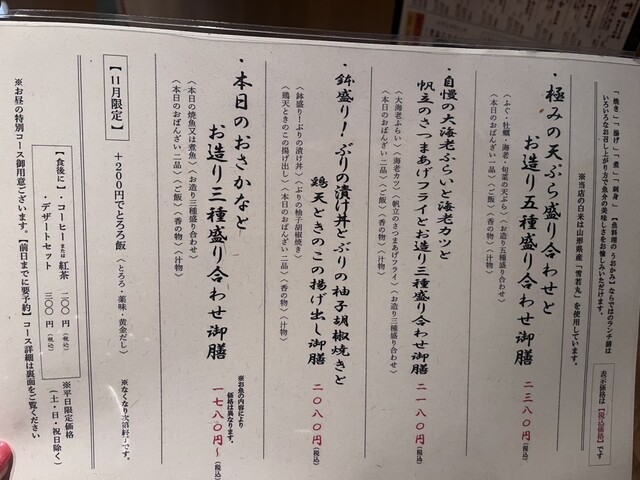 「焼き」、「揚げ」、「煮」、「刺身」
いろいろなお召し上がり方で魚介の美味しさをお愉しみいただけます。
【魚料理の うおかみ】ならではのランチ膳は
※当店の白米は山形県産「雪若丸」を使用しています。
表示価格は【税込価格】です
・極みの天ぷら盛り合わせと
お造り五種盛り合わせ御膳
二三八〇円(税込)
〈ふぐ・牡蠣・海老・旬菜の天ぷら〉〈お造り五種盛り合わせ〉
〈本日のおばんざい二品〉〈ご飯〉〈香の物〉〈汁物〉
・自慢の大海老ふらいと海老カツと
帆立のさつまあげフライとお造り三種盛り合わせ御膳
二一八〇円(税込)
〈大海老ふらい〉〈海老カツ〉〈帆立のさつまあげフライ〉〈お造り三種盛り合わせ〉
〈本日のおばんざい二品〉〈ご飯〉〈香の物〉〈汁物〉
・鉢盛り!ぶりの漬け丼とぶりの柚子胡椒焼きと
鶏天ときのこの揚げ出し御膳
二〇八〇円(税込)
〈鉢盛り!ぶりの漬け丼〉〈ぶりの柚子胡椒焼き〉
〈鶏天ときのこの揚げ出し〉〈本日のおばんざい二品〉〈香の物〉〈汁物〉
・本日のおさかなと
お造り三種盛り合わせ御膳
※お魚の内容により
価格は異なります。
一七八〇円～(税込)
〈本日の焼魚又は煮魚〉〈お造り三種盛り合わせ〉
〈本日のおばんざい二品〉〈ご飯〉〈香の物〉〈汁物〉
【11月限定】
+200円でとろろ飯〈とろろ・薬味・黄金だし〉
※なくなり次第終了です。
【食後に】・コーヒーまたは紅茶 二〇〇円(税込)
・デザートセット 三〇〇円(税込)
※平日限定価格
(土・日・祝日除く)
※お昼の特別コース御用意ございます。【前日までに要予約】コース詳細は裏面をご覧ください